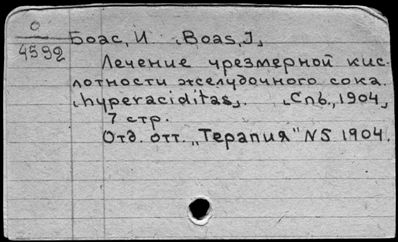 О
4592
Боас, И. [Boas, J]
Лечение чрезмерной кис-
лотности желудочного сока.
[hyperaciditas]. [Спб., 1904]
7 стр.
Отд. отт. „Терапия" N5 1904.